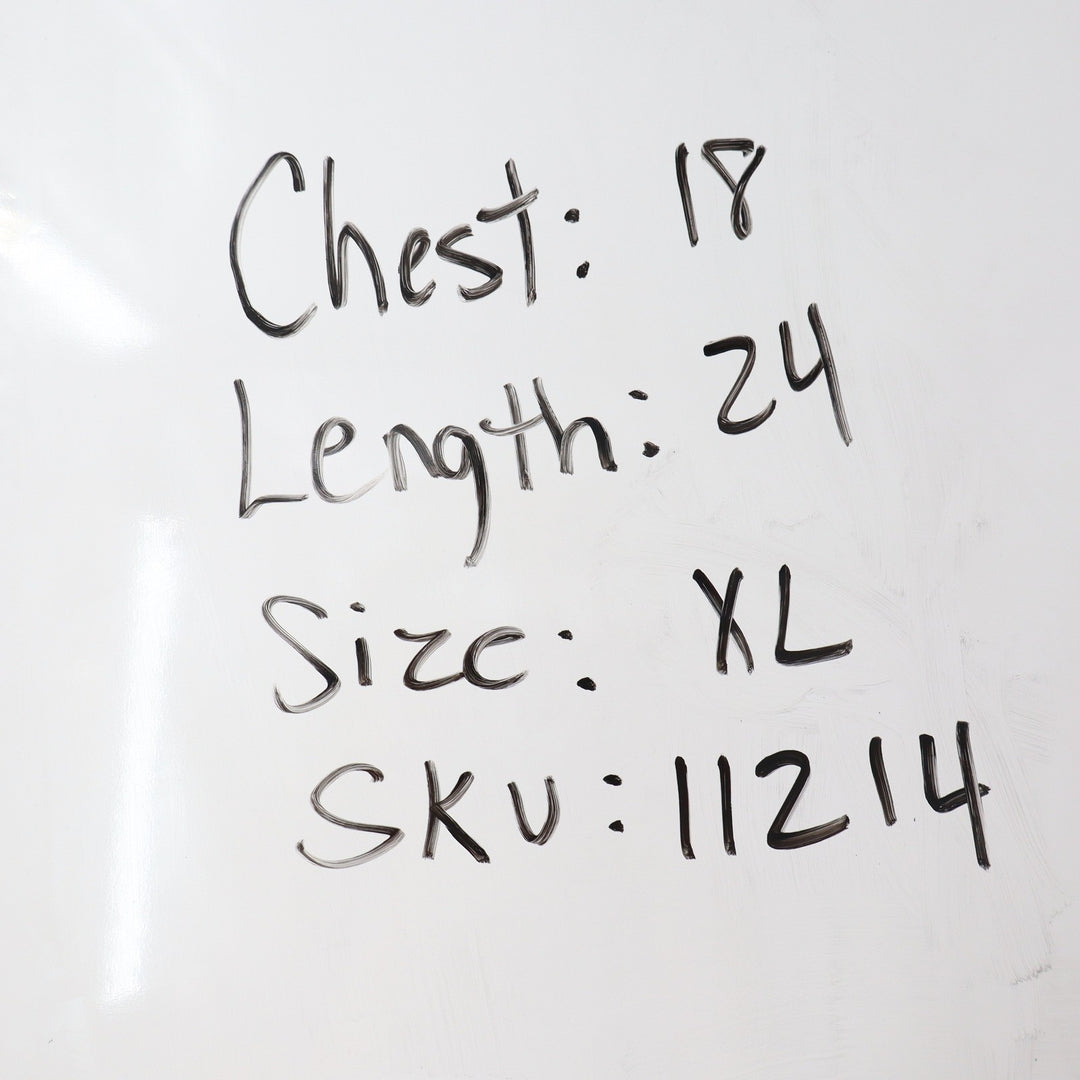 Chest: 18
Length: 24
Size: XL
SKU: 11214